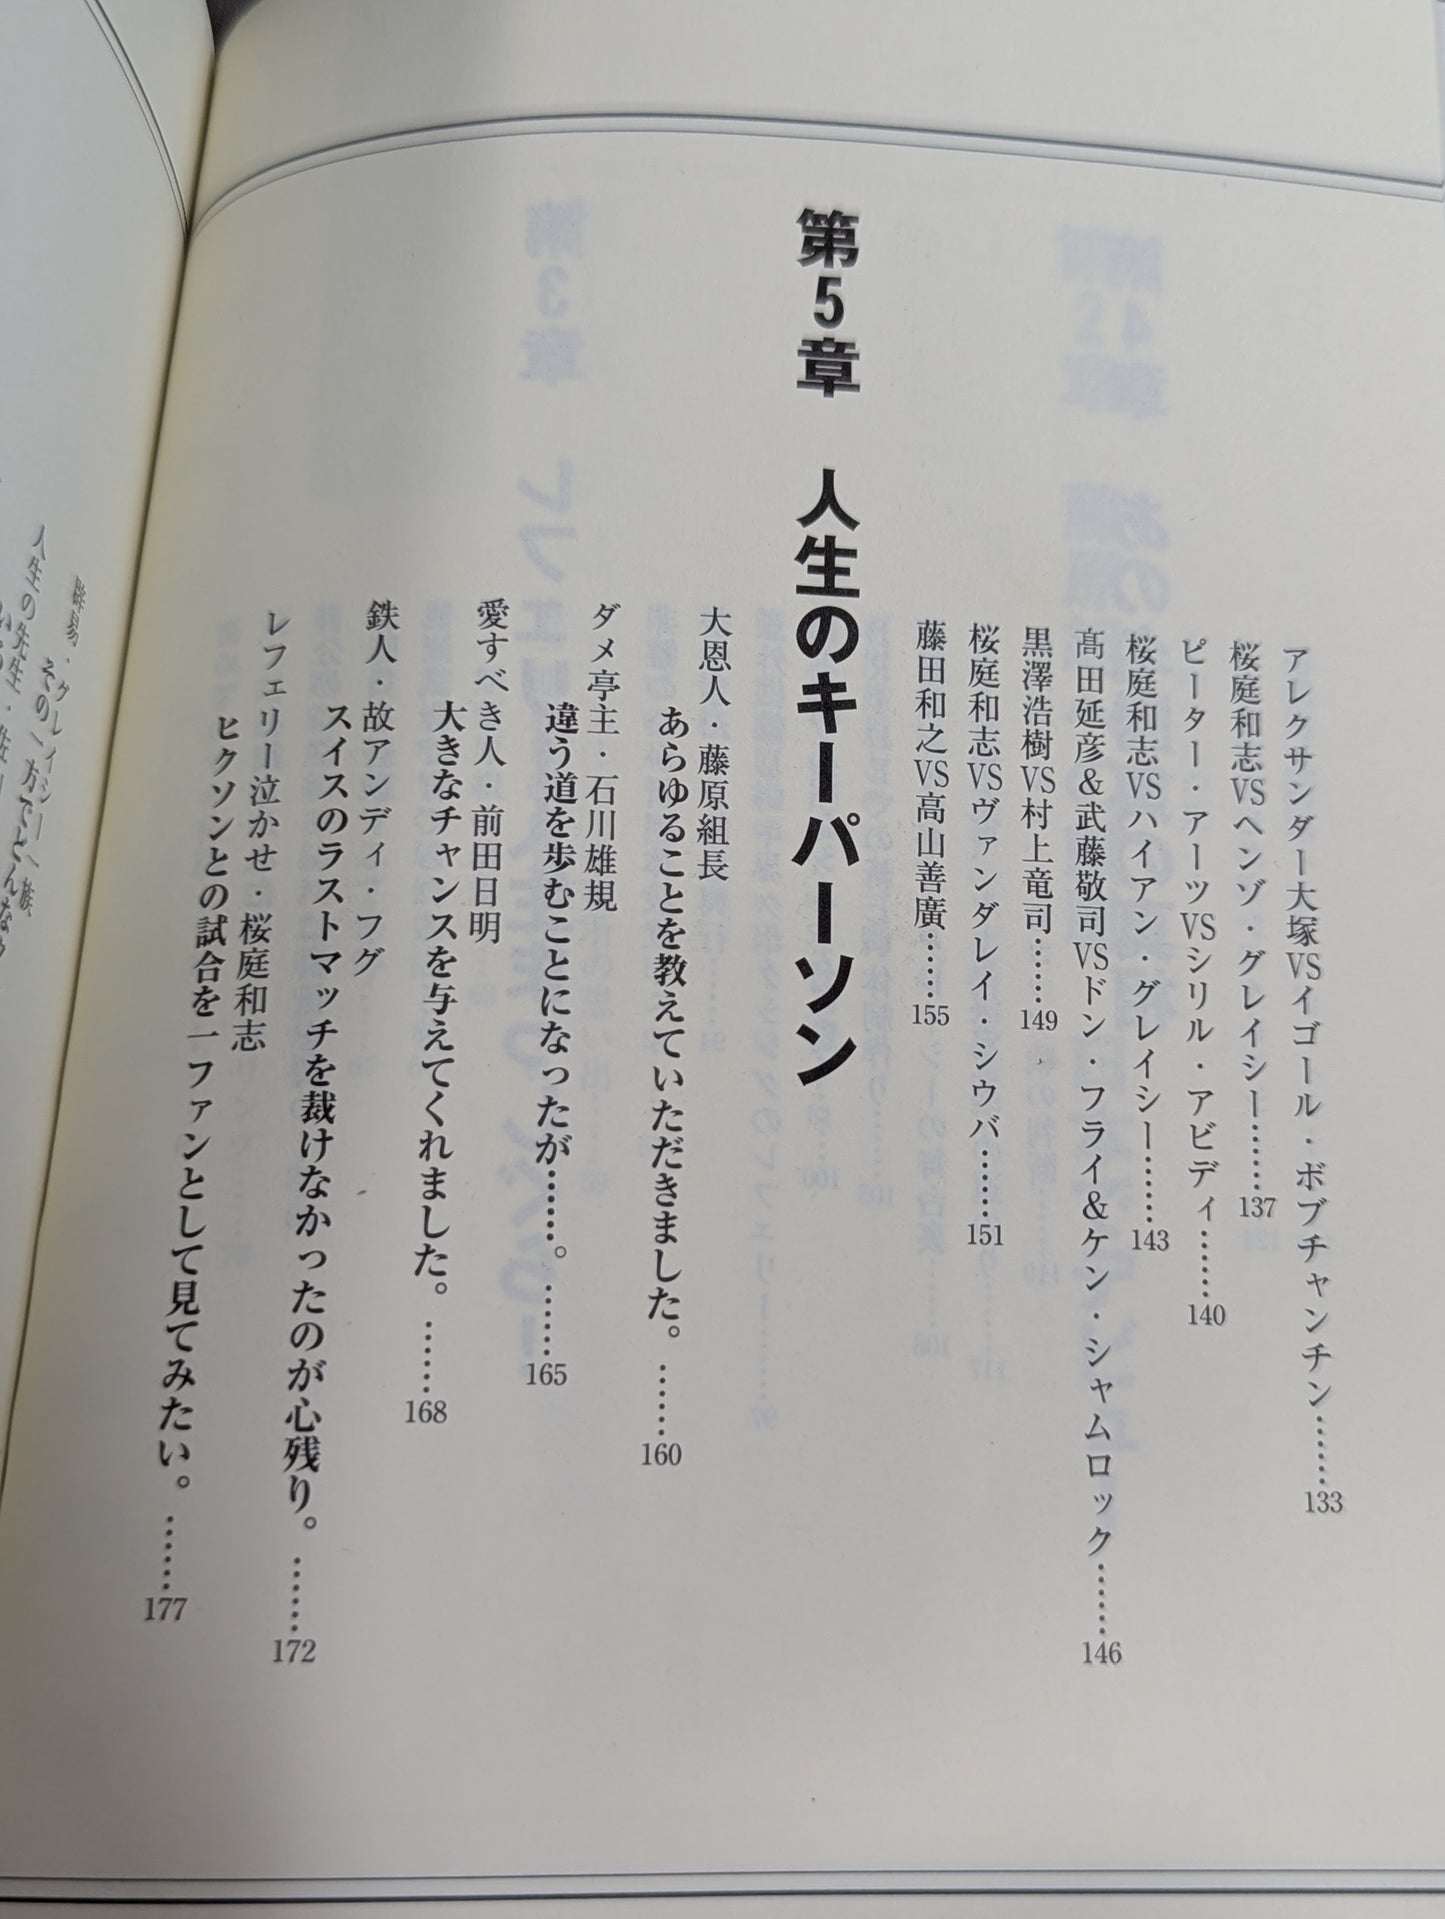 アレクサンダー大塚VSイゴール・ボブチャンチン……133
桜庭和志VSヘンゾ・グレイシー……137
ピーター・アーツVSシリル・アビディ……140
桜庭和志VSハイアン・グレイシー……143
髙田延彦&武藤敬司VSドン・フライ&ケン・シャムロック……146
黒澤浩樹VS村上竜司……149
桜庭和志VSヴァンダレイ・シウバ……151
藤田和之VS高山善廣……155
第5章 人生のキーパーソン
大恩人・藤原組長
あらゆることを教えていただきました。……160
ダメ亭主・石川雄規
違う道を歩むことになったが……。……165
愛すべき人・前田日明
大きなチャンスを与えてくれました。……168
鉄人・故アンディ・フグ
スイスのラストマッチを裁けなかったのが心残り。……172
レフェリー泣かせ・桜庭和志
ヒクソンとの試合を一ファンとして見てみたい。……177
グレイシー一族
その一方でどんな
人生の先生・